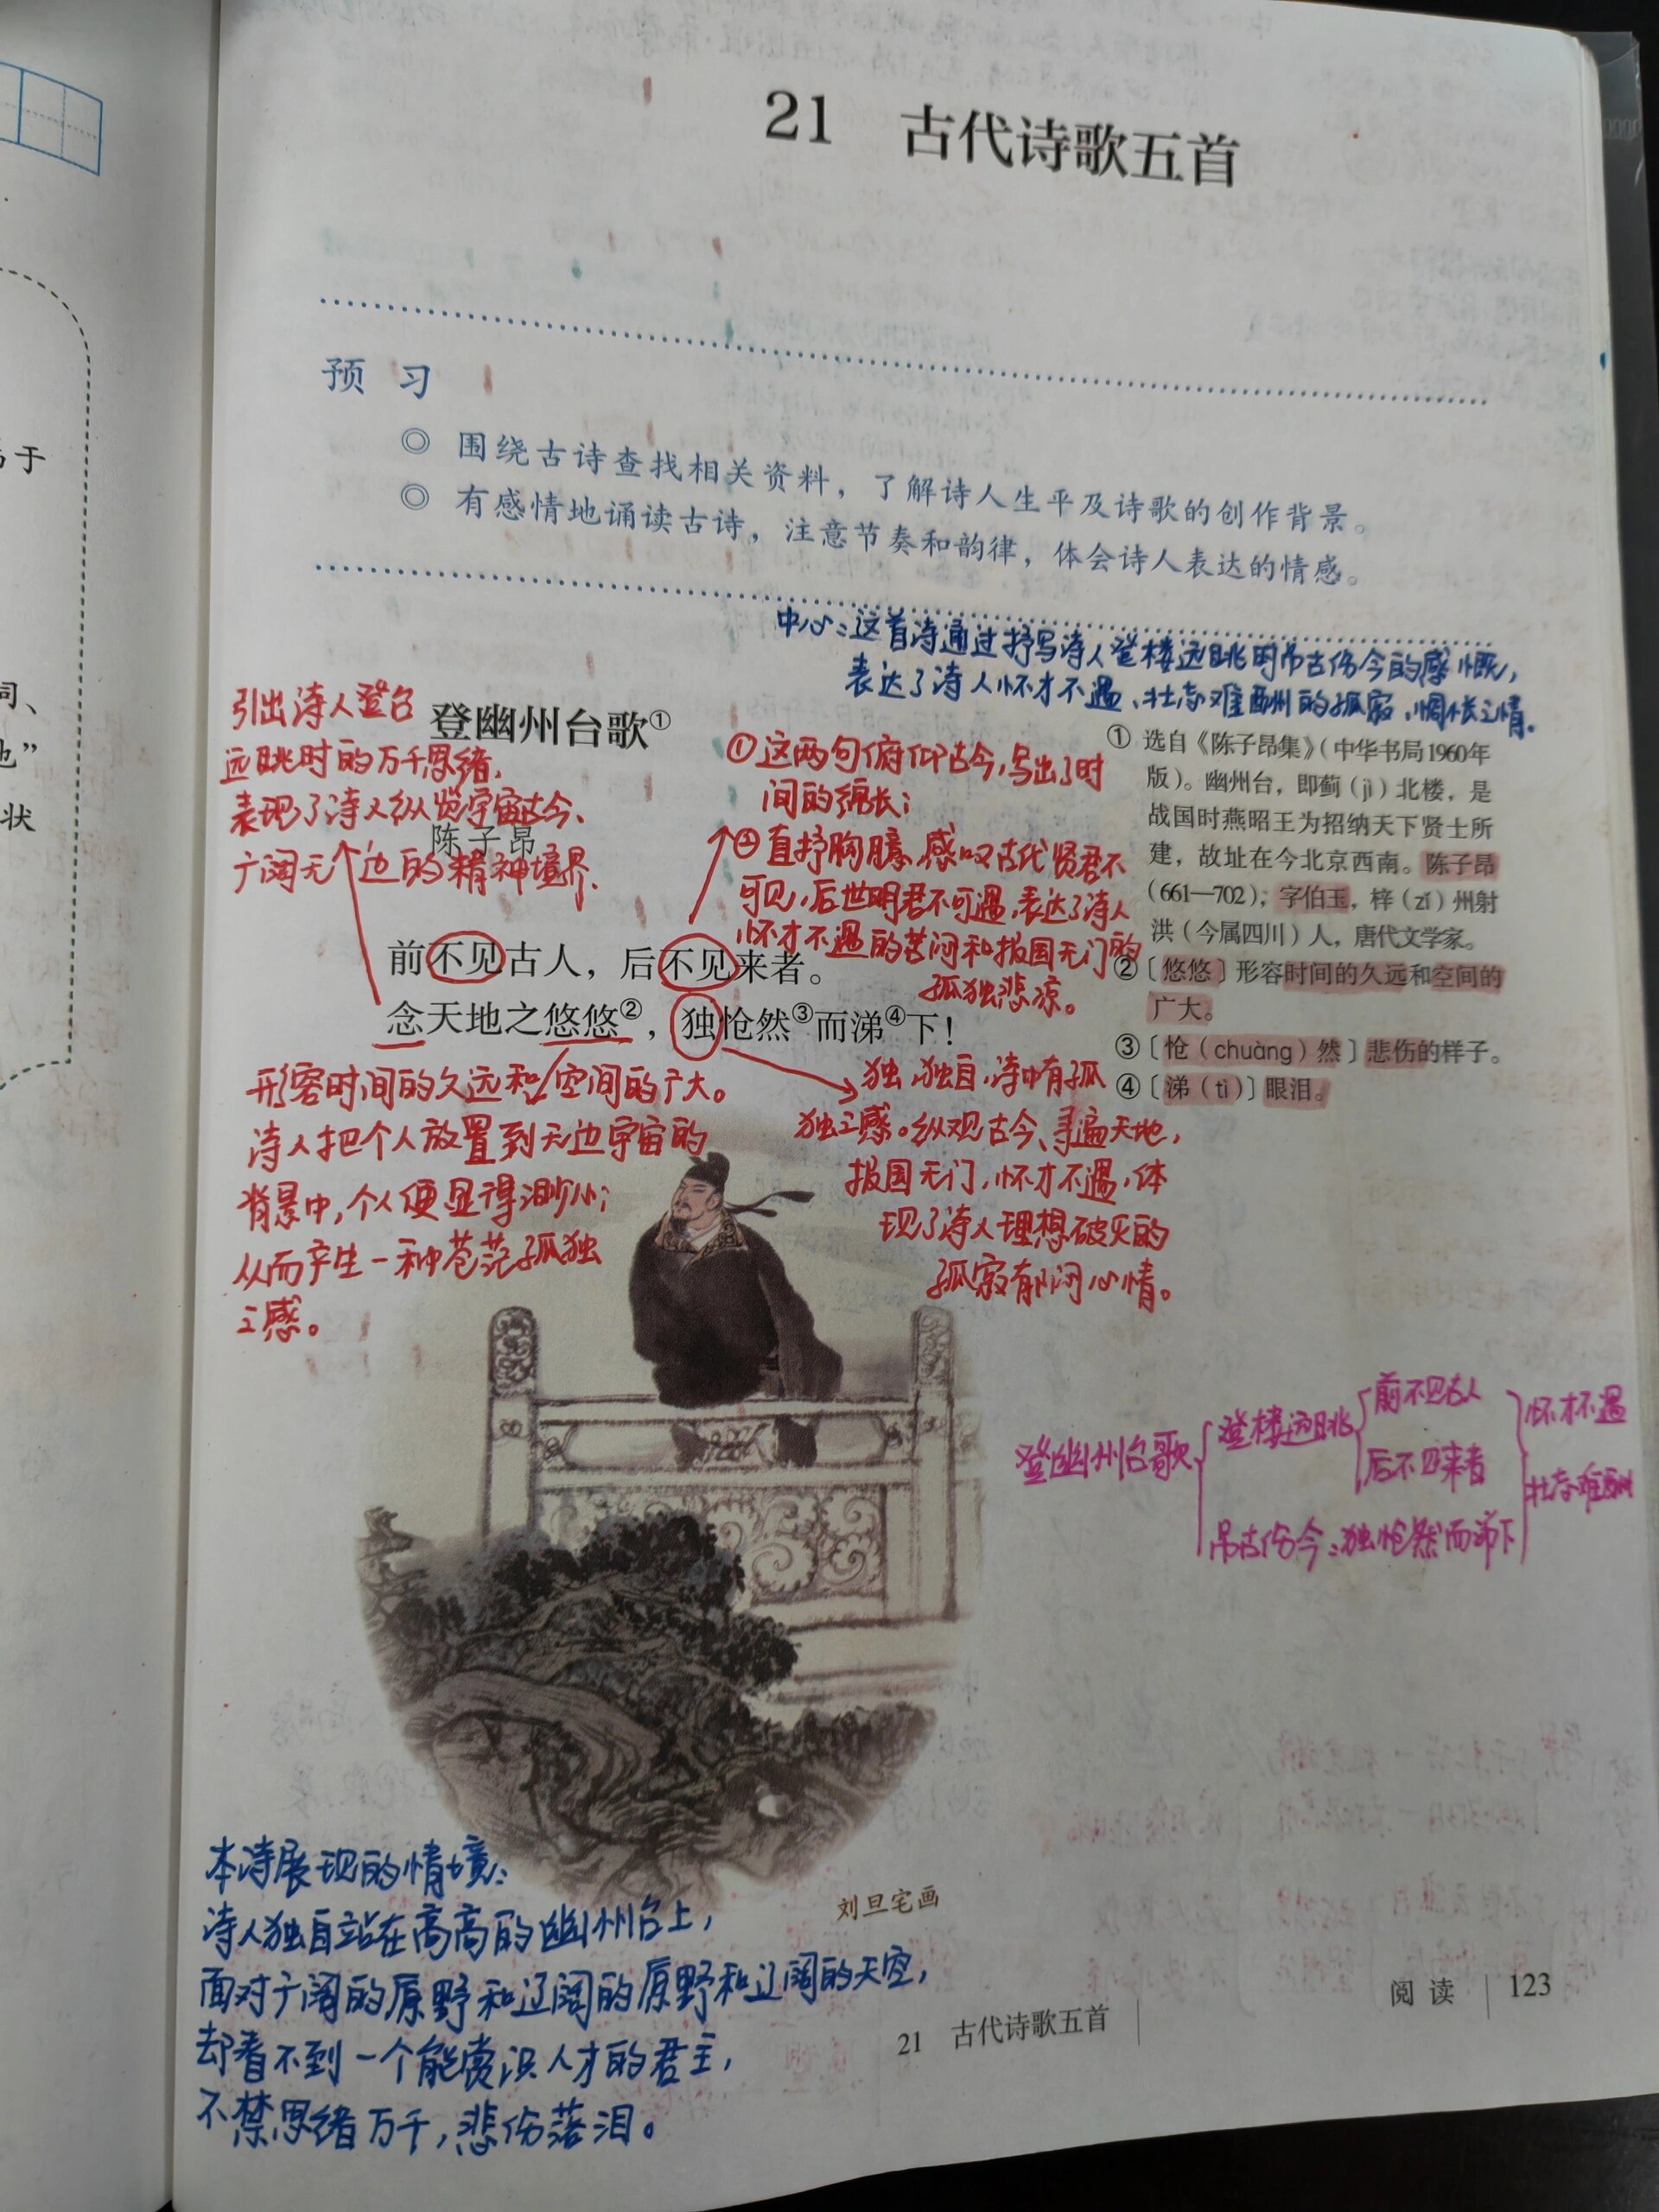 21 古代诗歌五首
预 习
◎ 围绕古诗查找相关资料，了解诗人生平及诗歌的创作背景。
◎ 有感情地诵读古诗，注意节奏和韵律，体会诗人表达的情感。
中心：这首诗通过抒写诗人登楼远眺时吊古伤今的感慨，
表达了诗人怀才不遇、壮志难酬的孤寂、惆怅之情。
引出诗人登台
远眺时的万千思绪，
表现了诗人纵览宇宙古今、
广阔无边的精神境界、
登幽州台歌①
陈子昂
①这两句俯仰古今，写出了时
间的绵长；
②直抒胸臆，感叹古代贤君不
可见，后世明君不可遇，表达了诗人
怀才不遇的苦闷和报国无门的
孤独悲凉。
前不见古人，后不见来者。
念天地之悠悠②，独怆然③而涕④下！
① 选自《陈子昂集》（中华书局1960年
版）。幽州台，即蓟（jì）北楼，是
战国时燕昭王为招纳天下贤士所
建，故址在今北京西南。陈子昂
（661—702），字伯玉，梓（zǐ）州射
洪（今属四川）人，唐代文学家。
②〔悠悠〕形容时间的久远和空间的
广大。
③〔怆（chuàng）然〕悲伤的样子。
④〔涕（tì）〕眼泪。
形容时间的久远和空间的广大。
诗人把个人放置到无边宇宙的
背景中，个人便显得渺小；
从而产生一种苍茫孤独
之感。
独，独自，诗中有孤
独之感。纵观古今、寻遍天地，
报国无门，怀才不遇，体
现了诗人理想破灭的
孤寂郁闷心情。
登幽州台歌
登楼远眺
前不见古人
后不见来者
吊古伤今：独怆然而涕下
怀才不遇
壮志难酬
刘旦宅画
本诗展现的情境：
诗人独自站在高高的幽州台上，
面对广阔的原野和辽阔的原野和辽阔的天空，
却看不到一个能赏识人才的君主，
不禁思绪万千，悲伤落泪。
21 古代诗歌五首
阅 读 123
于
词、
地”
状